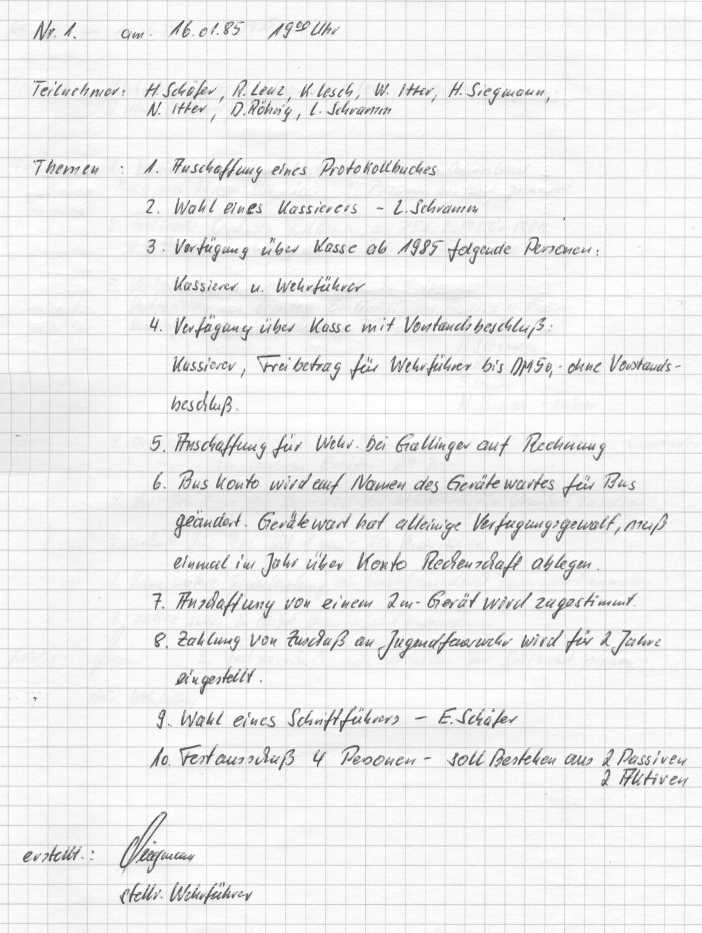 Nr. 1. am. 16.01.85 19⁰⁰ Uhr
Teilnehmer: H. Schäfer, R. Lenz, K. Lesch, W. Itter, H. Siegmann,
N. Itter, D. Röhrig, L. Schramm
Themen : 1. Anschaffung eines Protokollbuches
2. Wahl eines Kassierers - L. Schramm
3. Verfügung über Kasse ab 1985 folgende Personen:
Kassierer u. Wehrführer
4. Verfügung über Kasse mit Vorstandsbeschluß:
Kassierer, Freibetrag für Wehrführer bis DM 50,- ohne Vorstands-
beschluß.
5. Anschaffung für Wehr. bei Gallinger auf Rechnung
6. Bus Konto wird auf Namen des Gerätewartes für Bus
geändert. Gerätewart hat alleinige Verfügungsgewalt, muß
einmal im Jahr über Konto Rechenschaft ablegen.
7. Anschaffung von einem 2m-Gerät wird zugestimmt.
8. Zahlung von Zuschuß an Jugendfeuerwehr wird für 2 Jahre
eingestellt.
9. Wahl eines Schriftführers - E. Schäfer
10. Festausschuß 4 Personen - soll Bestehen aus 2 Passiven
2 Aktiven
erstellt.: Siegmann
stellv. Wehrführer